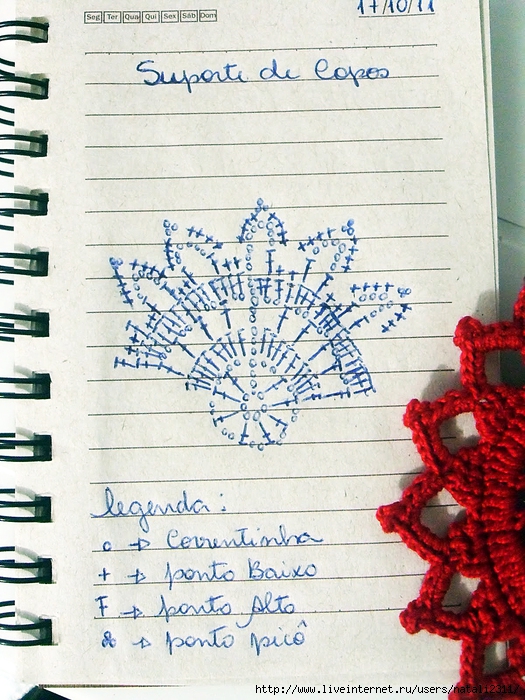 Seg Ter Qua Qui Sex Sáb Dom
17/10/11
Suporte de Copos
legenda:
o → Correntinha
+ → ponto Baixo
Ŧ → ponto Alto
→ ponto picô
http://www.liveinternet.ru/users/natali12314/